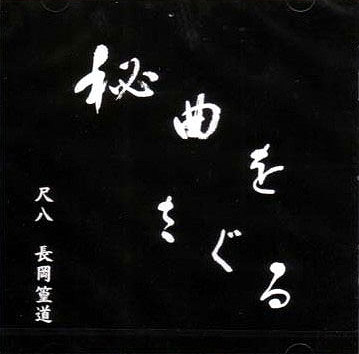 秘曲を
さぐる
尺八 長岡篁道